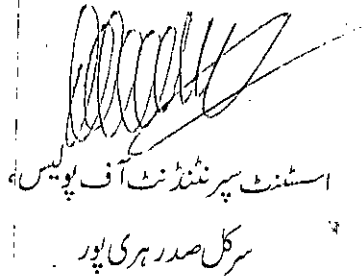 اسسٹنٹ سپرنٹنڈنٹ آف پولیس،
سرکل صدر ہری پور